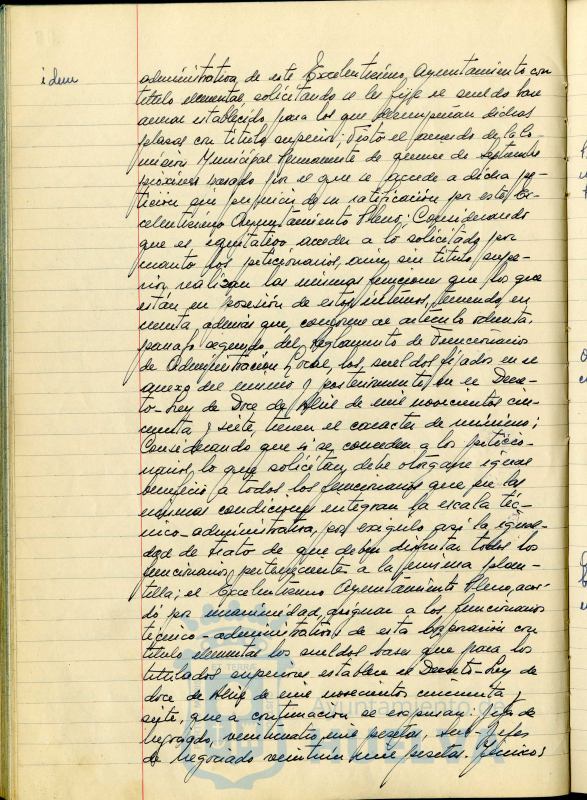 idem
administrativa, de este Excelentísimo Ayuntamiento con
título elemental, solicitando se les fije el sueldo base
anual establecido para los que desempeñan dichas
plazas con título superior; Visto el acuerdo de la Co-
misión Municipal Permanente de quince de Septiembre
próximo pasado por el que se accede a dicha pe-
tición sin perjuicio de su ratificación por este Ex-
celentísimo Ayuntamiento Pleno; Considerando
que es equitativo acceder a lo solicitado por
cuanto los peticionarios, aún sin título supe-
rior, realizan las mismas funciones que los que
están en posesión de estos mismos, teniendo en
cuenta además que, conforme al artículo ochenta,
párrafo segundo del Reglamento de Funcionarios
de Administración Local, los sueldos fijados en el
anexo del mismo y posteriormente en el Decre-
to-Ley de Doce de Abril de mil novecientos cin-
cuenta y siete, tienen el carácter de mínimo;
Considerando que si se conceden a los peticio-
narios lo que solicitan, debe otorgarse igual
beneficio a todos los funcionarios que en las
mismas condiciones integran la escala téc-
nico-administrativa, por exigirlo así la igual-
dad de trato de que deben disfrutar todos los
funcionarios pertenecientes a la misma plan-
tilla; el Excelentísimo Ayuntamiento Pleno, acor-
dó por unanimidad, asignar a los funcionarios
técnico-administrativos de esta Corporación con
título elemental los sueldos bases que para los
titulados superiores establece el Decreto-Ley de
doce de Abril de mil novecientos cincuenta y
siete, que a continuación se expresan: Jefes de
Negociado, veinticuatro mil pesetas; Sub-Jefes
de Negociado veintiún mil pesetas. Técnicos
Ayuntamiento de